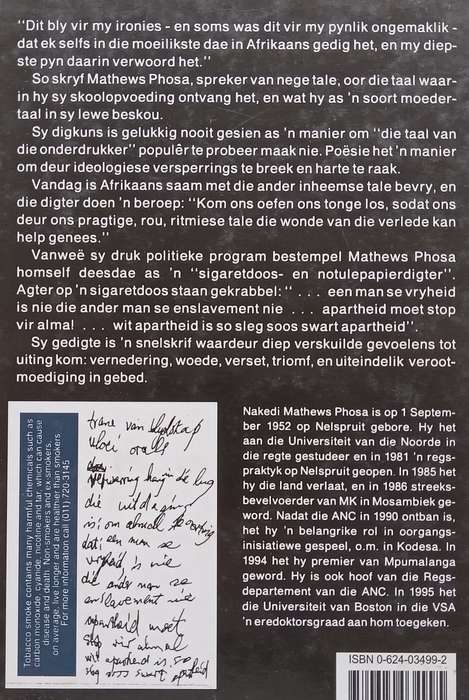 "Dit bly vir my ironies - en soms was dit vir my pynlik ongemaklik -
dat ek selfs in die moeilikste dae in Afrikaans gedig het, en my diep-
ste pyn daarin verwoord het."
So skryf Mathews Phosa, spreker van nege tale, oor die taal waar-
in hy sy skoolopvoeding ontvang het, en wat hy as 'n soort moeder-
taal in sy lewe beskou.
Sy digkuns is gelukkig nooit gesien as 'n manier om "die taal van
die onderdrukker" populêr te probeer maak nie. Poësie het 'n manier
om deur ideologiese versperrings te breek en harte te raak.
Vandag is Afrikaans saam met die ander inheemse tale bevry, en
die digter doen 'n beroep: "Kom ons oefen ons tonge los, sodat ons
deur ons pragtige, rou, ritmiese tale die wonde van die verlede kan
help genees."
Vanweë sy druk politieke program bestempel Mathews Phosa
homself deesdae as 'n "sigaretdoos- en notulepapierdigter".
Agter op 'n sigaretdoos staan gekrabbel: " . . . een man se vryheid
is nie die ander man se enslavement nie . . . apartheid moet stop
vir altyd . . . wit apartheid is so sleg soos swart apartheid".
Sy gedigte is 'n snelskrif waardeur diep verskuilde gevoelens tot
uiting kom: vernedering, woede, verset, triomf, en uiteindelik veroot-
moediging in gebed.
Tobacco smoke contains many harmful chemicals such as
carbon monoxide, cyanide, nicotine and tar, which can cause
disease and death. Non-smokers and ex-smokers,
on average, live longer and are healthier than smokers
For more information call (011) 720-3145
trane van
vloei oralls
verwarring hang in die lug
die
is; om almal te
dat: een man se
vryheid is nie
die ander man se
enslavement nie
apartheid moet
stop vir almal
wit apartheid is so
sleg soos swart apartheid
Nakedi Mathews Phosa is op 1 Septem-
ber 1952 op Nelspruit gebore. Hy het
aan die Universiteit van die Noorde in
die regte gestudeer en in 1981 'n regs-
praktyk op Nelspruit geopen. In 1985 het
hy die land verlaat, en in 1986 streeks-
bevelvoerder van MK in Mosambiek ge-
word. Nadat die ANC in 1990 ontban is,
het hy 'n belangrike rol in oorgangs-
inisiatiewe gespeel, o.m. in Kodesa. In
1994 het hy premier van Mpumalanga
geword. Hy is ook hoof van die Regs-
departement van die ANC. In 1995 het
die Universiteit van Boston in die VSA
'n eredoktorsgraad aan hom toegeken.
ISBN 0-624-03499-2